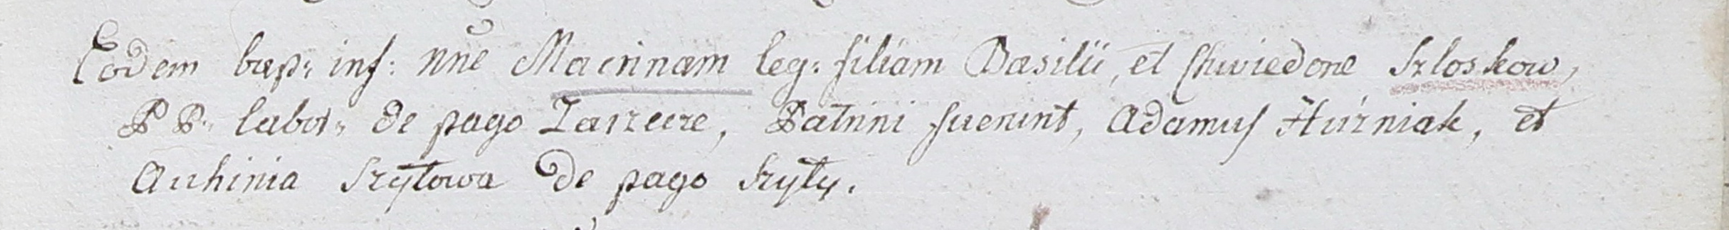 Eodem bap: inf: nn̄e Macrinam leg: filiam Basilii, et Chwiedore Szloskow,
PP. labor: de pago Zarzecze, Patrini fuerunt, Adamus Huzniak, et
Auhinia Szytowa de pago Szyty.